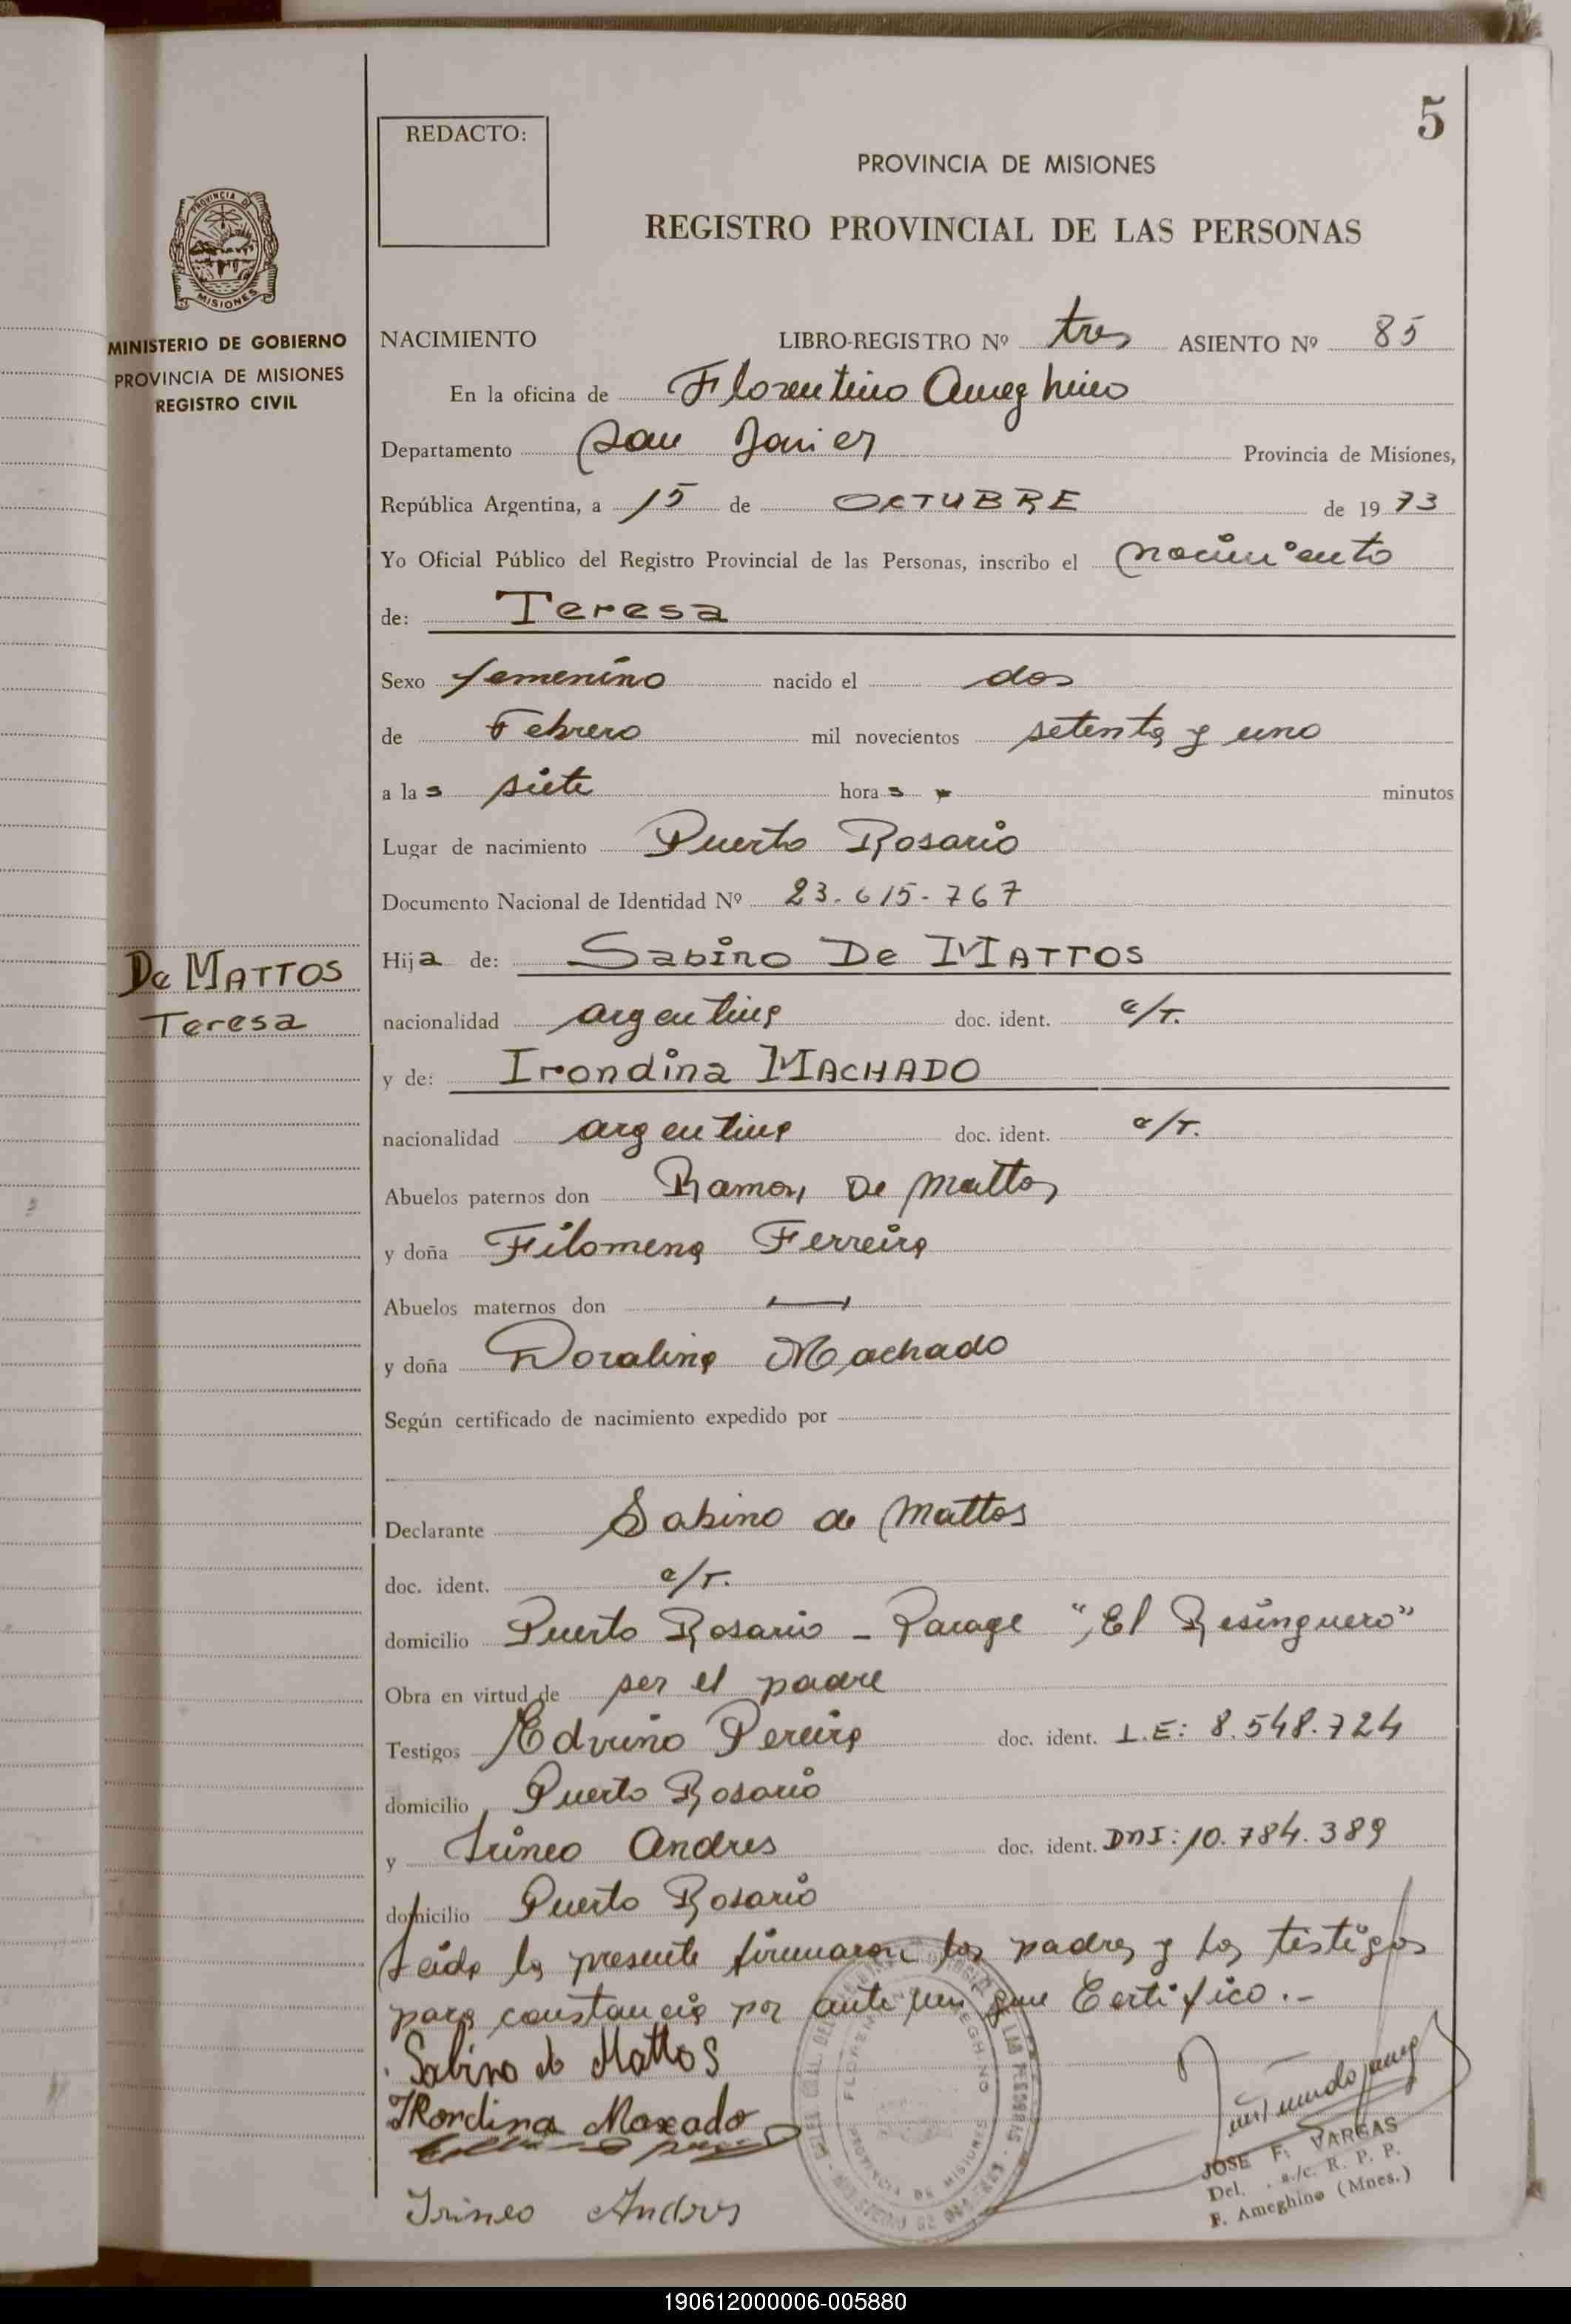 5
REDACTO:
PROVINCIA DE MISIONES
REGISTRO PROVINCIAL DE LAS PERSONAS
PROVINCIA DE
MISIONES
MINISTERIO DE GOBIERNO
PROVINCIA DE MISIONES
REGISTRO CIVIL
NACIMIENTO LIBRO-REGISTRO Nº tres ASIENTO Nº 85
En la oficina de Florentino Ameghino
Departamento San Javier Provincia de Misiones,
República Argentina, a 15 de OCTUBRE de 1973
Yo Oficial Público del Registro Provincial de las Personas, inscribo el nacimiento
de: Teresa
Sexo femenino nacido el dos
de Febrero mil novecientos setenta y uno
a las siete horas minutos
Lugar de nacimiento Puerto Rosario
Documento Nacional de Identidad Nº 23.615.767
De MATTOS
Teresa
Hija de: Sabino De MATTOS
nacionalidad argentina doc. ident. c/r.
y de: Irondina MACHADO
nacionalidad argentina doc. ident. c/r.
Abuelos paternos don Ramon De Mattos
y doña Filomena Ferreira
Abuelos maternos don
y doña Doralina Machado
Según certificado de nacimiento expedido por
Declarante Sabino de Mattos
doc. ident. c/r.
domicilio Puerto Rosario - Parage "El Resinguero"
Obra en virtud de ser el padre
Testigos Edvino Pereira doc. ident. L.E: 8.548.724
domicilio Puerto Rosario
y Irineo Andres doc. ident. DNI: 10.784.389
domicilio Puerto Rosario
Leida la presente firmaron los padres y los testigos
para constancia por ante mi que Certifico.-
Sabino de Mattos
IRondina Maxado
Irineo Andres
JOSE F. VARGAS
Del. a/c. R. P. P.
F. Ameghino (Mnes.)
190612000006-005880